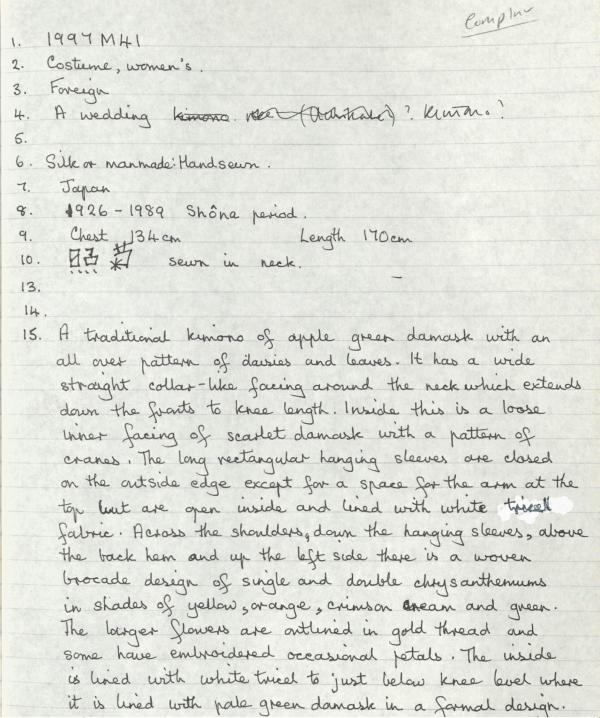 1. 1997 M41
2. Costume, women's.
3. Foreign
4. A wedding kimono. (Uchikake) ? Kimono?
5.
6. Silk or manmade: Handsewn.
7. Japan
8. 1926 - 1989 Shôna period.
9. Chest 134cm Length 170cm
10. sewn in neck.
13.
14.
15. A traditional kimono of apple green damask with an
all over pattern of daisies and leaves. It has a wide
straight collar-like facing around the neck which extends
down the fronts to knee length. Inside this is a loose
inner facing of scarlet damask with a pattern of
cranes. The long rectangular hanging sleeves are closed
on the outside edge except for a space for the arm at the
top but are open inside and lined with white tricell
fabric. Across the shoulders, down the hanging sleeves, above
the back hem and up the left side there is a woven
brocade design of single and double chrysanthemums
in shades of yellow, orange, crimson cream and green.
The larger flowers are outlined in gold thread and
some have embroidered occasional petals. The inside
is lined with white tricel to just below knee level where
it is lined with pale green damask in a formal design.